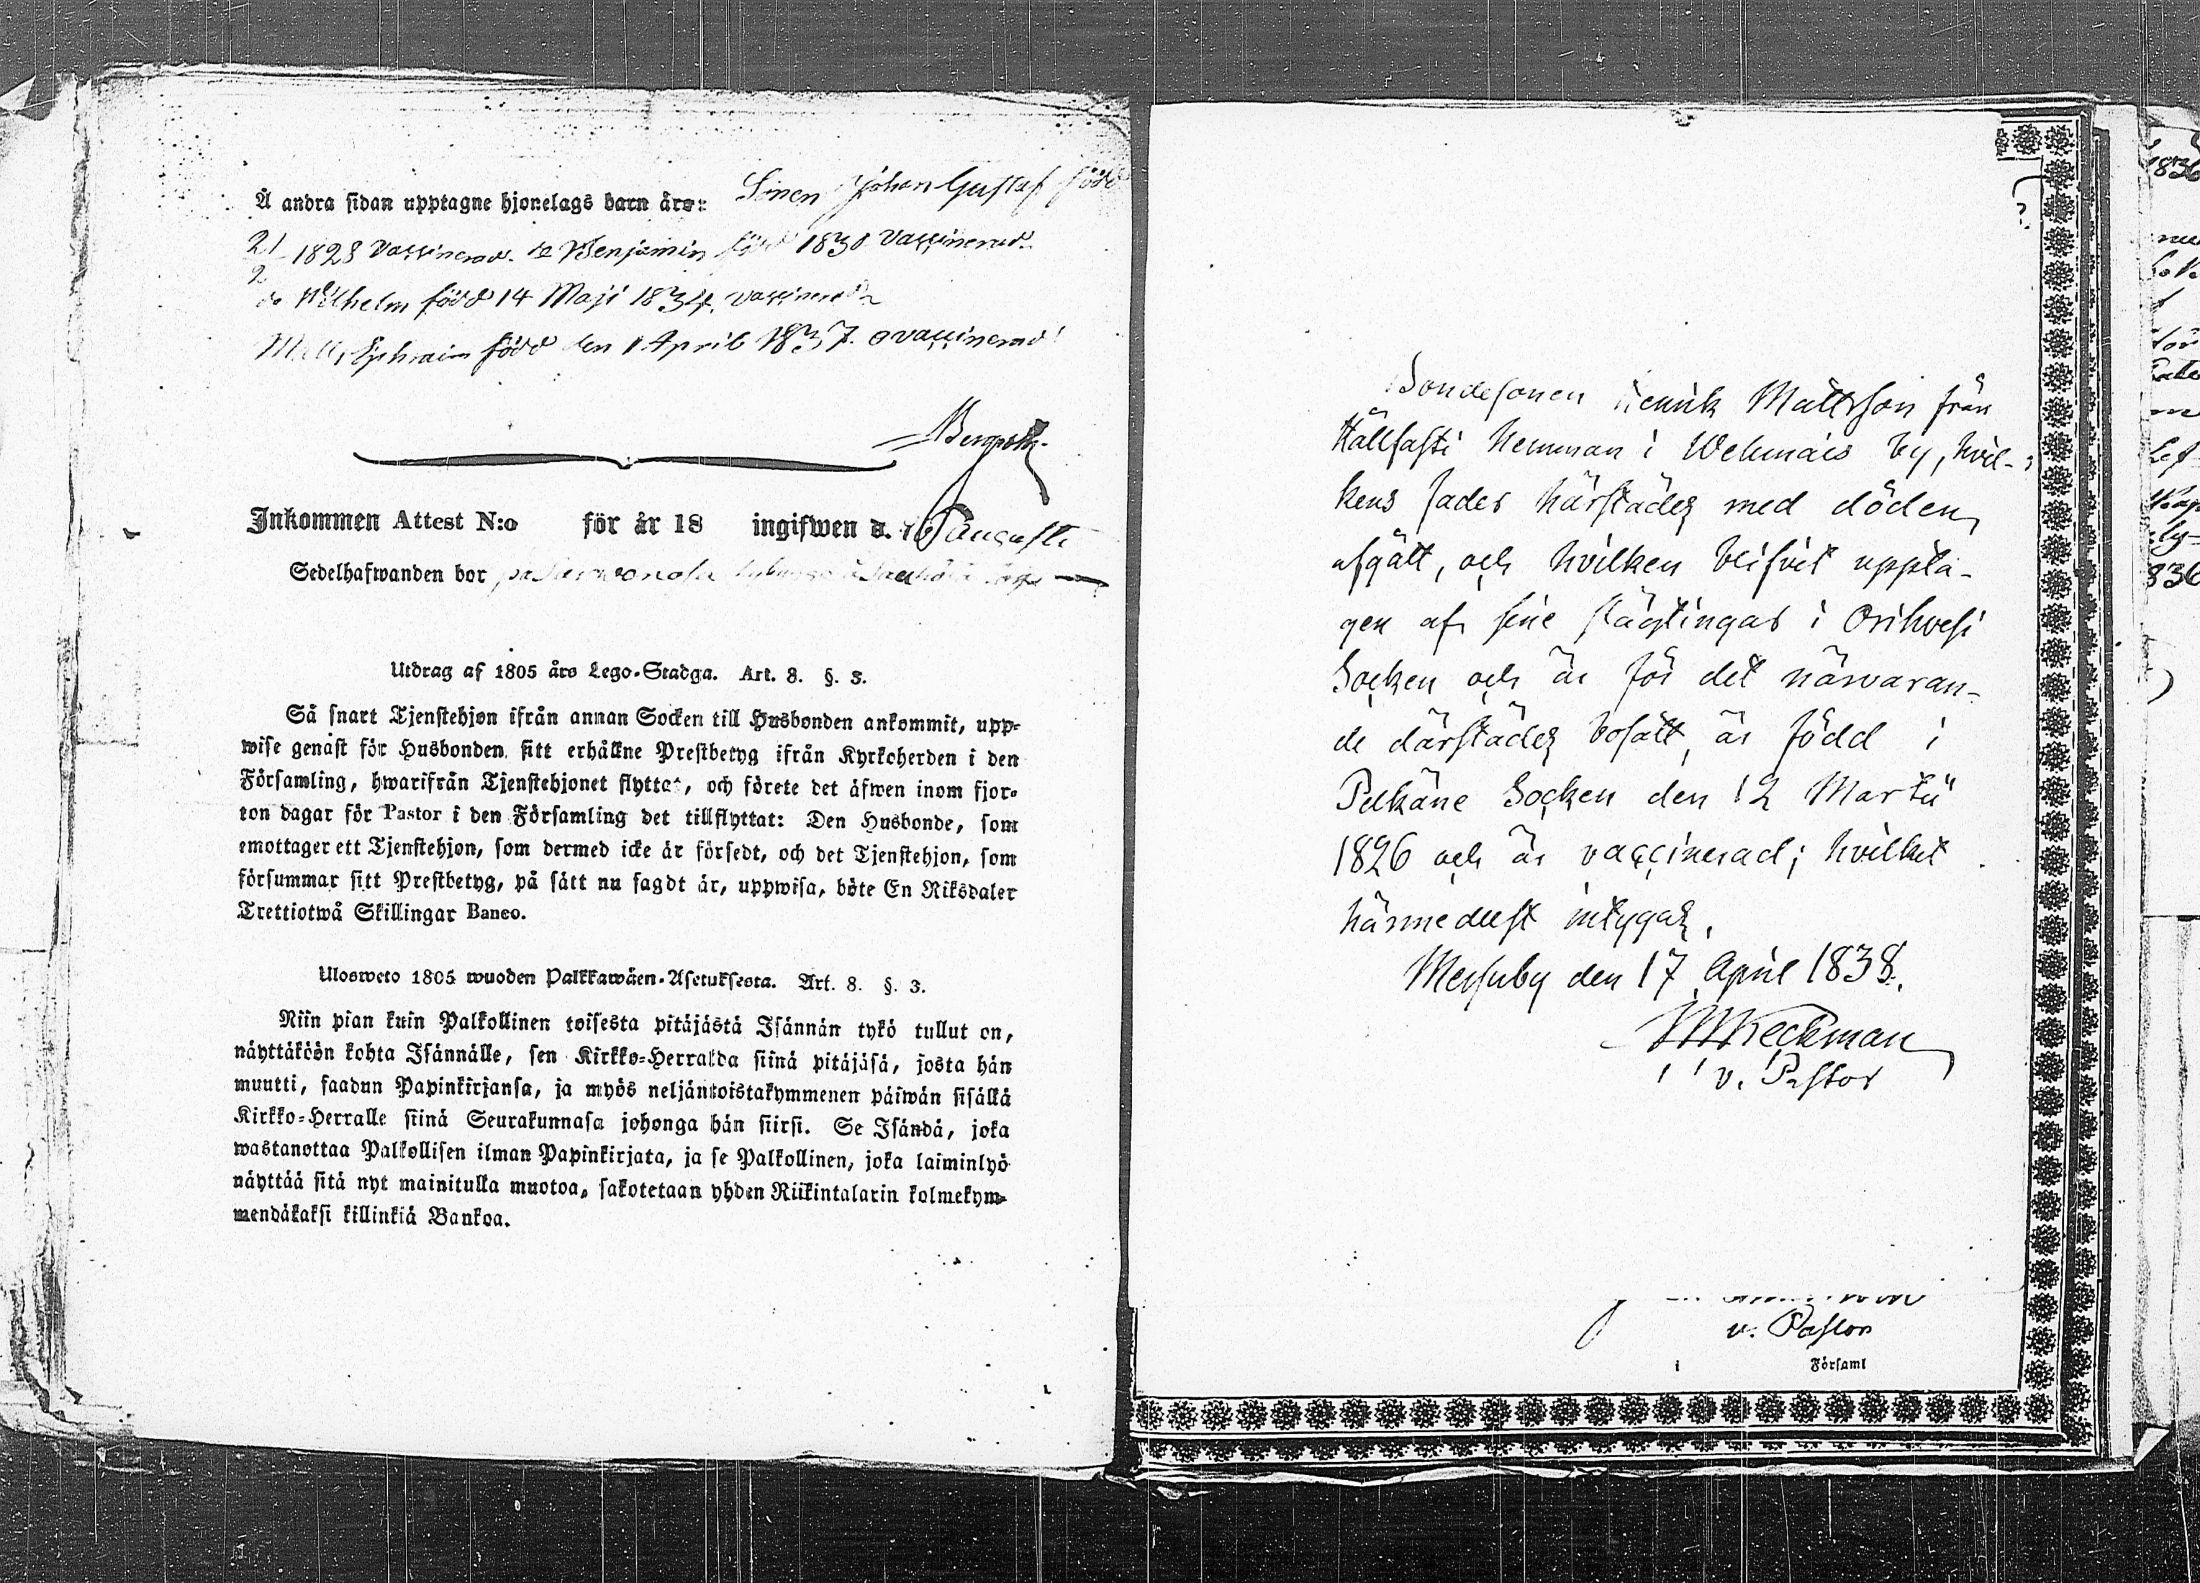 Å andra sidan upptagne hjonelags barn äro: Sonen Johan Gustaf född
21/2 1828 vaccinerad. do Benjamin född 1830 vaccinerad
do Wilhelm född 14 Maji 1834. vaccinerad
Matts Ephraim född den 1 April 1837. ovaccinerad
Inkommen Attest N:o för år 18 ingifwen d. 16 Augusti
Sedelhafwanden bor på
Utdrag af 1805 års Lego-Stadga. Art. 8. §. 3.
Så snart Tjenstehjon ifrån annan Socken till Husbonden ankommit, upp-
wise genast för Husbonden sitt erhållne Prestbetyg ifrån Kyrkoherden i den
Församling, hwarifrån Tjenstehjonet flyttat, och förete det äfwen inom fjor-
ton dagar för Pastor i den Församling det tillflyttat: Den Husbonde, som
emottager ett Tjenstehjon, som dermed icke är försedt, och det Tjenstehjon, som
försummar sitt Prestbetyg, på sätt nu sagdt är, uppwisa, böte En Riksdaler
Trettiotwå Skillingar Banco.
Ulosweto 1805 wuoden Palkkawäen-Asetuksesta. Art. 8. §. 3.
Niin pian kuin Palkollinen toisesta pitäjästä Isännän tykö tullut on,
näyttäköön kohta Isännälle, sen Kirkko-Herralda siinä pitäjäsä, josta hän
muutti, saadun Papinkirjansa, ja myös neljäntoistakymmenen päiwän sisällä
Kirkko-Herralle siinä Seurakunnasa johonga hän siirsi. Se Isändä, joka
wastanottaa Palkollisen ilman Papinkirjata, ja se Palkollinen, joka laiminlyö
näyttää sitä nyt mainitulla muotoa, sakotetaan yhden Riikintalarin kolmekym-
mendäkaksi killinkiä Bankoa.
Bondesonen Henrik Mattsson från
Hällfasti Hemman i Wehmais by, hvil-
kens fader härstädes med döden
afgått, och hvilken blifvit uppta-
gen af sine slägtingar i Orihvesi
Socken och är för det närvaran-
de därstädes bosatt, är född i
Pelkäne Socken den 12 Martii
1826 och är vaccinerad; hvilket
härmedelst intygas.
Messuby den 17 April 1838.
Heckman
v. Pastor
v. Pastor
i Församl